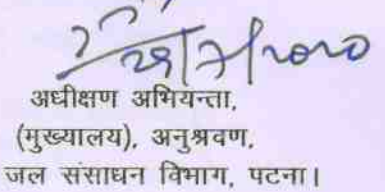 अधीक्षण अभियन्ता,
(मुख्यालय), अनुश्रवण,
जल संसाधन विभाग, पटना।